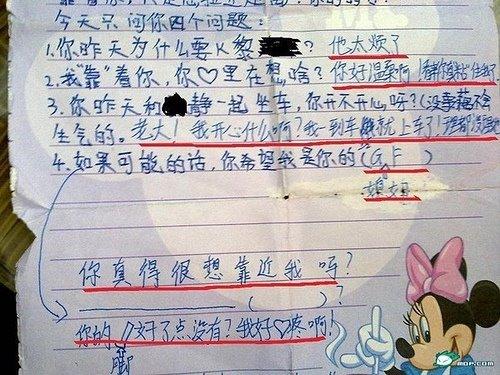 今天只问你四个问题：
1.你昨天为什么要K黎？他太烦了
2.我"靠"着你，你♡里在想啥？你好温柔啊！
3.你昨天和静一起坐车，你开不开心呀？(没事我不会
生气的。老大！我开心什么啊？我一到车
4.如果可能的话，你希望我是你的(G.F )
媳妇
你真得很想靠近我吗？
( )？
你的脚好了点没有？我好♡疼啊！
MOP.COM